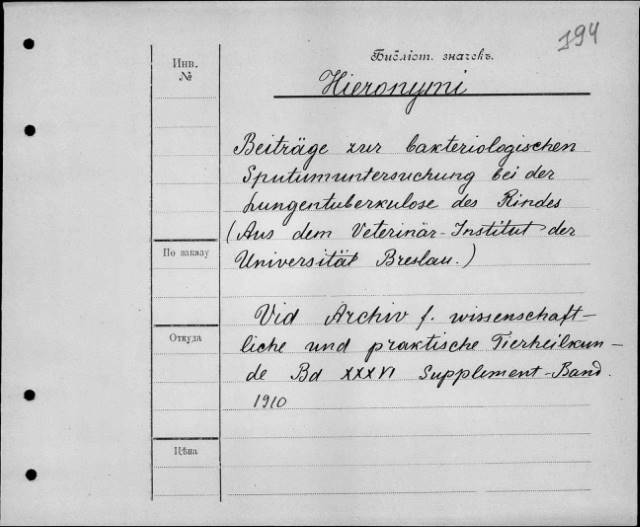 194
Библіот. значекъ.
Инв.
№
Hieronymi
Beiträge zur bakteriologischen
Sputumuntersuchung bei der
Lungentuberkulose des Rindes
(Aus dem Veterinär-Institut der
Universität Breslau.)
По заказу
Vid Archiv f. wissenschaft-
liche und praktische Tierheilkun-
de Bd XXXVI Supplement-Band.
1910
Откуда
Цѣна